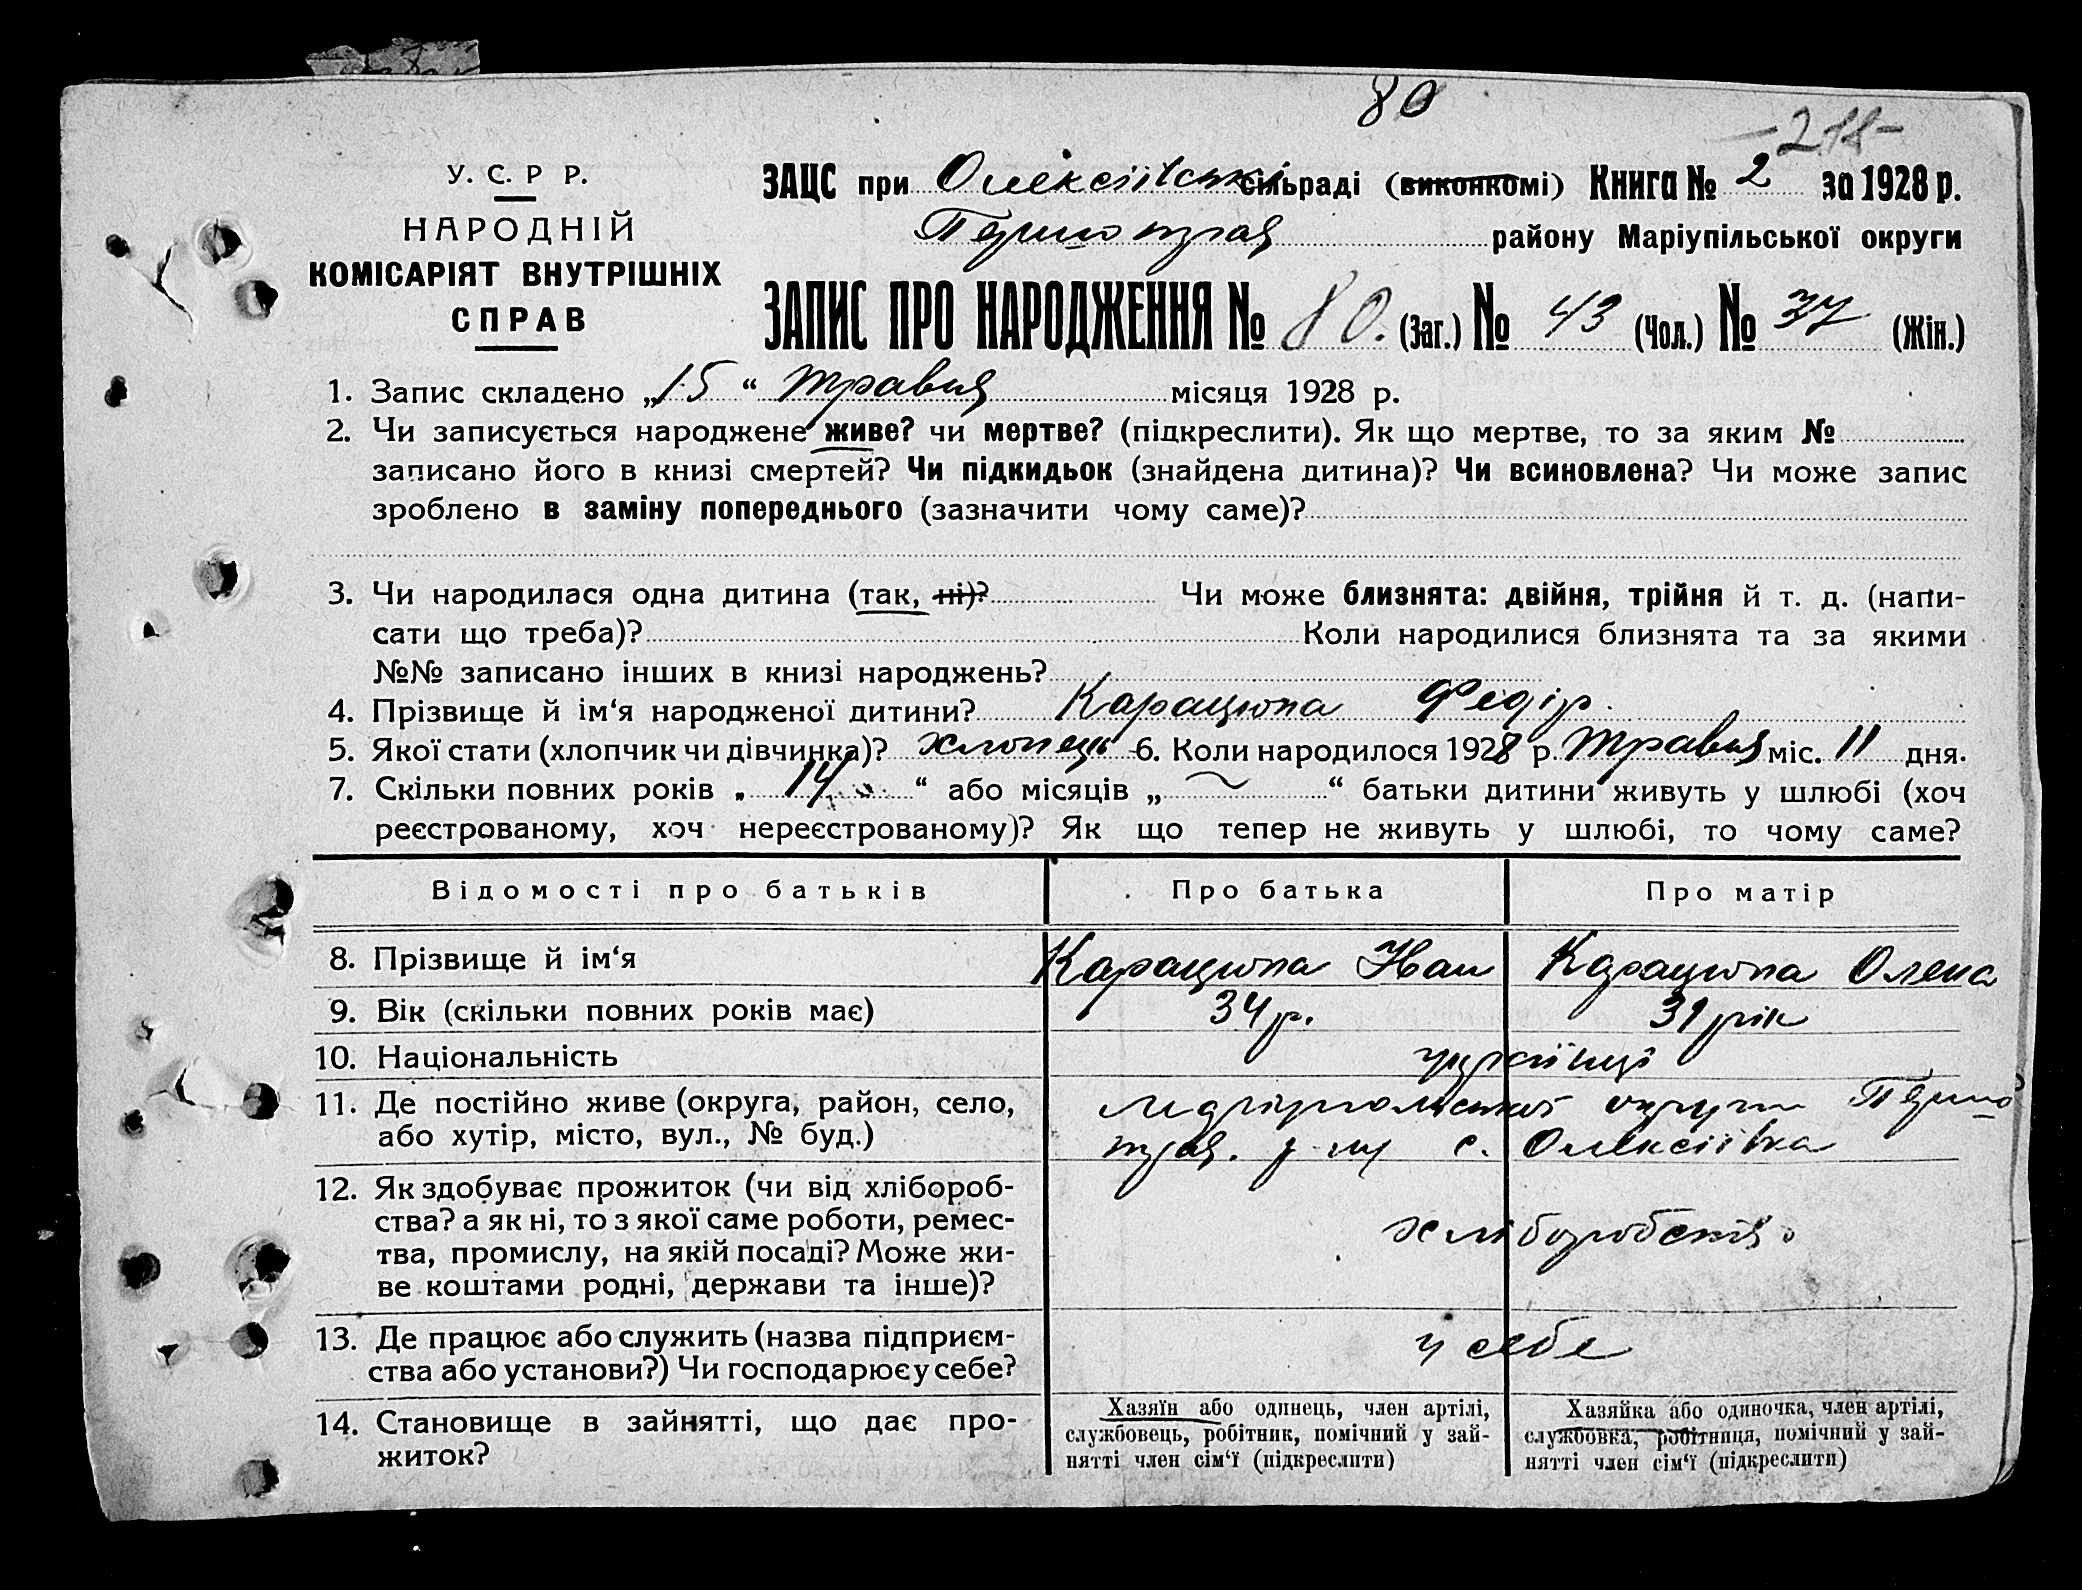 80
У. С. Р Р.
ЗАЦС при Олексіївські сільраді (виконкомі) Книга № 2 за 1928 р.
НАРОДНІЙ
КОМІСАРІЯТ ВНУТРІШНІХ
СПРАВ
Першотрав району Маріупільської округи
ЗАПИС ПРО НАРОДЖЕННЯ № 80. (Заг.) № 43 (Чол.) № 37 (Жін.)
1. Запис складено „15“ травня місяця 1928 р.
2. Чи записується народжене живе? чи мертве? (підкреслити). Як що мертве, то за яким №
записано його в книзі смертей? Чи підкидьок (знайдена дитина)? Чи всиновлена? Чи може запис
зроблено в заміну попереднього (зазначити чому саме)?
3. Чи народилася одна дитина (так, ні)? Чи може близнята: двійня, трійня й т. д. (напи-
сати що треба)? Коли народилися близнята та за якими
№№ записано інших в книзі народжень?
4. Прізвище й ім‘я народженої дитини? Карацюпа Федір.
5. Якої стати (хлопчик чи дівчинка)? хлопець 6. Коли народилося 1928 р. травня міс. 11 дня.
7. Скільки повних років „14“ або місяців „~“ батьки дитини живуть у шлюбі (хоч
реєстрованому, хоч нереєстрованому)? Як що тепер не живуть у шлюбі, то чому саме?
Відомості про батьків Про батька Про матір
8. Прізвище й ім‘я Карацюпа Иван Карацюпа Олена
9. Вік (скільки повних років має) 34 р. 31 рік
10. Національність українці
11. Де постійно живе (округа, район, село, Маріюпольської округи Першо
або хутір, місто, вул., № буд.) трав. р-ну с. Олексіївка
12. Як здобуває прожиток (чи від хлібороб-
ства? а як ні, то з якої саме роботи, ремес-
тва, промислу, на якій посаді? Може жи-
ве коштами родні, держави та інше)?
хліборобство
13. Де працює або служить (назва підприєм-
ства або установи?) Чи господарює у себе?
у себе
14. Становище в зайнятті, що дає про-
житок?
Хазяїн або одинець, член артілі,
службовець, робітник, помічний у зай-
нятті член сім‘ї (підкреслити)
Хазяйка або одиночка, член артілі,
службовка, робітниця, помічний у зай-
нятті член сім‘ї (підкреслити)